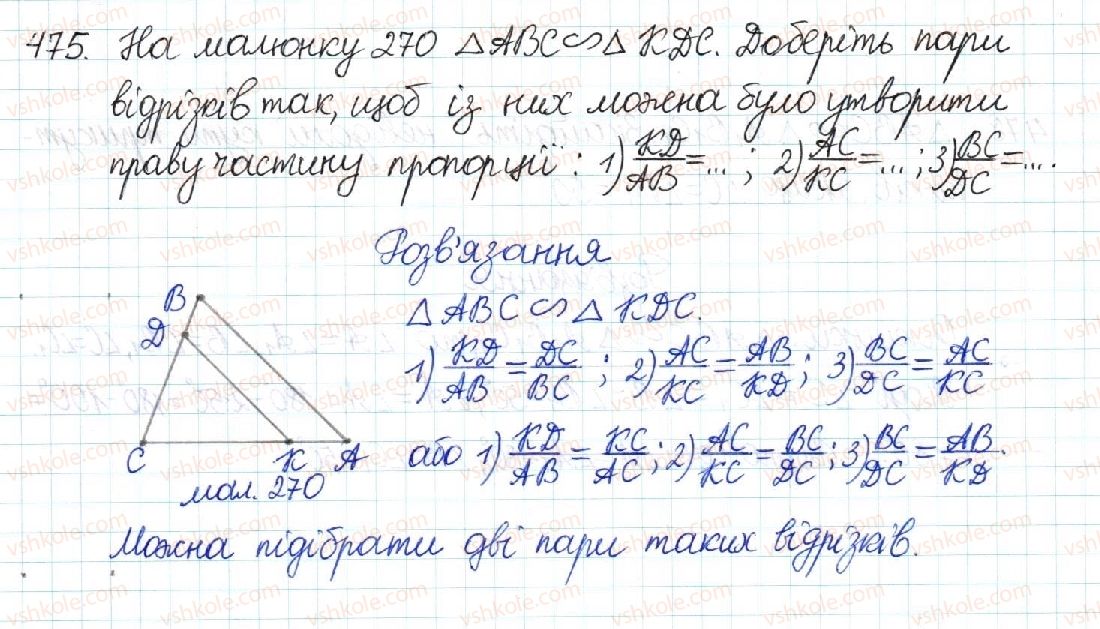 475. На малюнку 270 △ABC∽△KDC. Доберіть пари
відрізків так, щоб із них можна було утворити
праву частину пропорції: 1) KD/AB=...; 2) AC/KC=...; 3) BC/DC=....
Розв'язання
△ABC∽△KDC.
1) KD/AB=DC/BC; 2) AC/KC=AB/KD; 3) BC/DC=AC/KC
або 1) KD/AB=KC/AC; 2) AC/KC=BC/DC; 3) BC/DC=AB/KD.
B
D
C K A
мал. 270
Можна підібрати дві пари таких відрізків.
vshkole.com